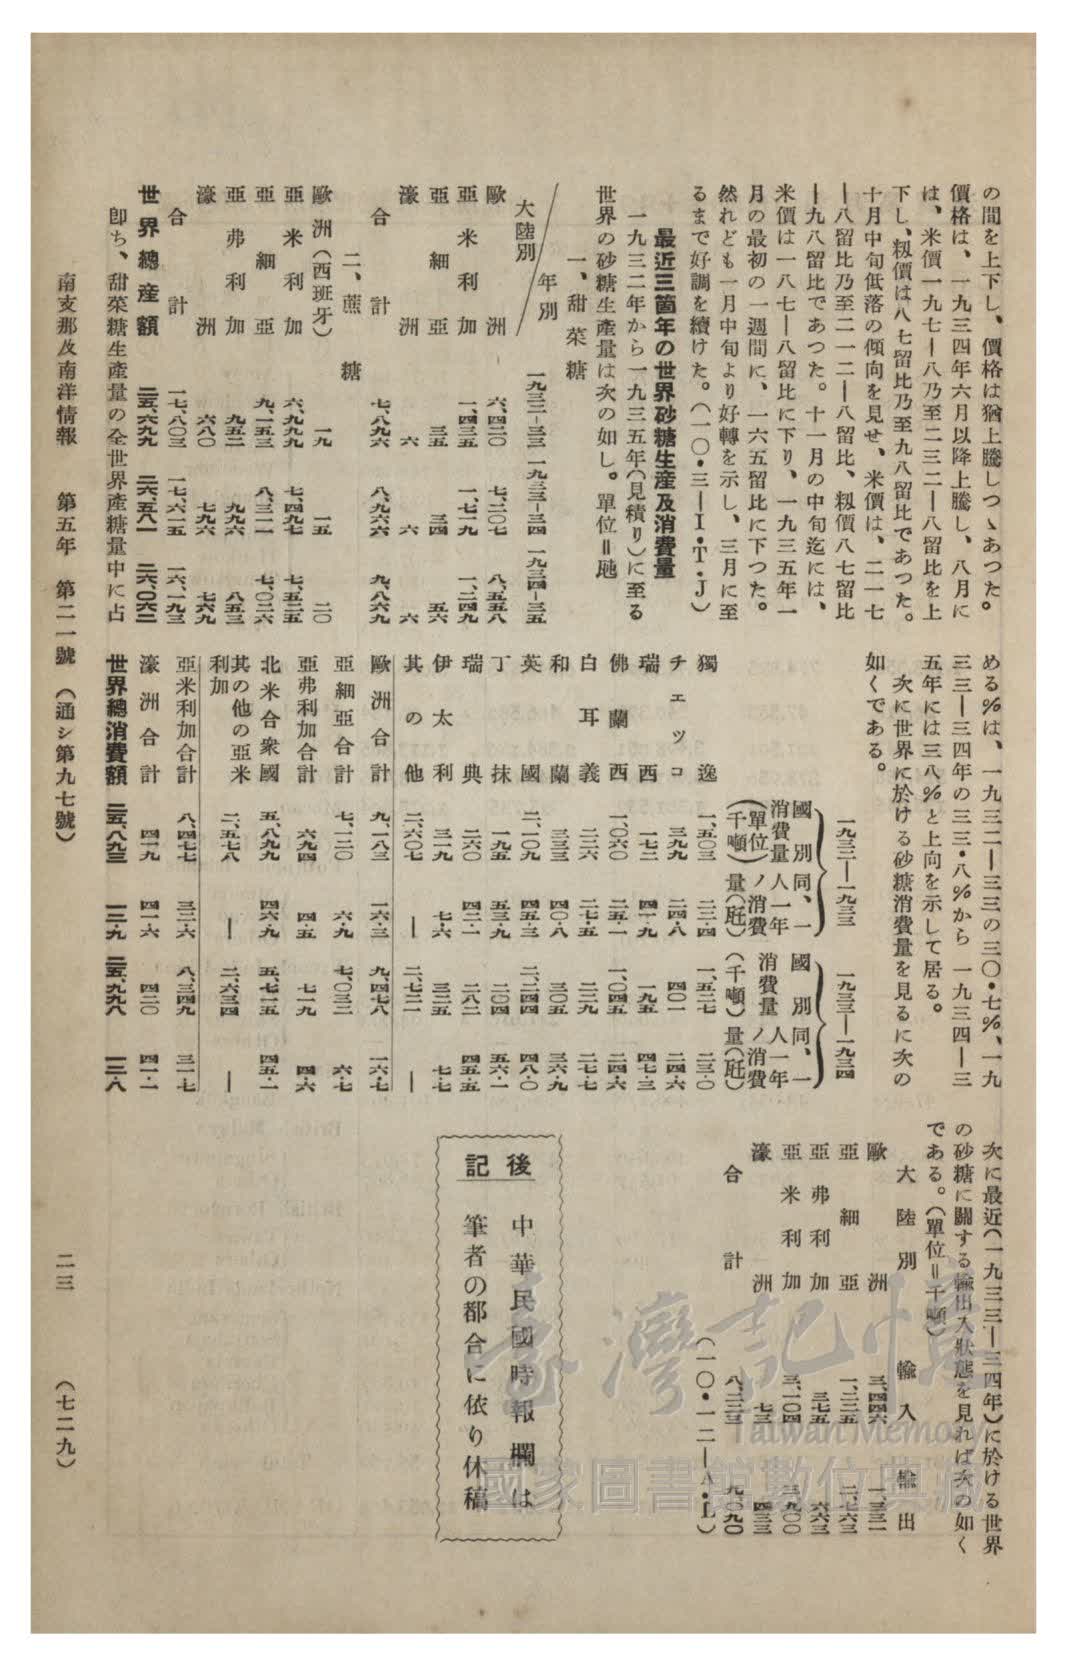 の間を上下し、價格は猶上騰しつゝあつた。
價格は、一九三四年六月以降上騰し、八月に
は、米價一九七—八乃至二三二—八留比を上
下し、籾價は八七留比乃至九八留比であつた。
十月中旬低落の傾向を見せ、米價は、二一七
—八留比乃至二一二—八留比、籾價八七留比
—九八留比であつた。十一月の中旬迄には、
米價は一八七—八留比に下り、一九三五年一
月の最初の一週間に、一六五留比に下つた。
然れども一月中旬より好轉を示し、三月に至
るまで好調を續けた。(一〇・三—I・T・J)
最近三箇年の世界砂糖生産及消費量
一九三二年から一九三五年(見積り)に至る
世界の砂糖生產量は次の如し。單位＝瓲
一、甜菜糖
年別 大陸別 一九三二-三三 一九三三-三四 一九三四-三五
歐洲 六、四二〇 七、二〇七 八、五五八
亞米利加 一、四三五 一、七一九 一、二四九
亞細亞 三五 三四 五六
濠洲 六 六 六
合計 七、八九六 八、九六六 九、八六九
二、蔗糖
歐洲(西班牙) 一九 一五 二〇
亞米利加 六、九三九 七、四九七 七、五二五
亞細亞 九、一五三 八、三一一 七、〇二六
亞弗利加 九五二 九九六 八五三
濠洲 六八〇 七九六 七六九
合計 一七、八〇三 一七、六一五 一六、一九三
世界總產額 二五、六九九 二六、五八一 二六、〇六二
卽ち、甜菜糖生產量の全世界產糖量中に占
める％は、一九三二—三三の三〇・七％、一九
三三—三四年の三三・八％から一九三四—三
五年には三八％と上向を示して居る。
次に世界に於ける砂糖消費量を見るに次の
如くである。
一九三二—一九三三 一九三三—一九三四
國別消費量(單位千噸) 同、一人一年ノ消費量(瓩) 國別消費量(千噸) 同、一人一年ノ消費量(瓩)
獨逸 一、五〇三 二三・四 一、五二七 二三・〇
チェッコ 三九九 二四・八 四〇一 二四・六
瑞西 一七二 四一・九 一九五 四七・三
佛蘭西 一、〇六〇 二五・一 一、〇四五 二四・六
白耳義 二二六 二七・五 二二九 二七・七
和蘭 三三三 四〇・八 三〇五 三六・九
英國 二、一〇九 四五・三 二、二四四 四八・〇
丁抹 一九五 五三・九 二〇四 五六・一
瑞典 二六〇 四二・一 二八二 四五・五
伊太利 三一九 七・六 三二五 七・七
其の他 二、六〇七 — 二、七二一 —
歐洲合計 九、一八三 一六・三 九、四七八 一六・七
亞細亞合計 七、一二〇 六・九 七、〇三二 六・七
亞弗利加合計 六九四 四・五 七一九 四・六
北米合衆國 五、八九九 四六・九 五、七一五 四五・一
其の他の亞米利加 二、五七八 — 二、六三四 —
亞米利加合計 八、四七七 三二・六 八、三四九 三一・七
濠洲合計 四一九 四一・六 四二〇 四一・一
世界總消費額 二五、八九三 一二・九 二五、九九八 一二・八
次に最近(一九三三—三四年)に於ける世界
の砂糖に關する輸出入狀態を見れば次の如く
である。(單位＝千噸)
大陸別 輸入 輸出
歐洲 三、四四六 一、三三一
亞細亞 一、二三五 二、七六三
亞弗利加 三七五 六六三
亞米利加 三、一〇四 三、九〇〇
濠洲 七三 四三三
合計 八、二三三 九、〇九〇
(一〇・一二—A・L)
後記
中華民國時報欄は
筆者の都合に依り休稿
南支那及南洋情報 第五年 第二一號 (通シ第九七號) 二三 (七二九)
臺灣記憶
Taiwan Memory
國家圖書館數位典藏